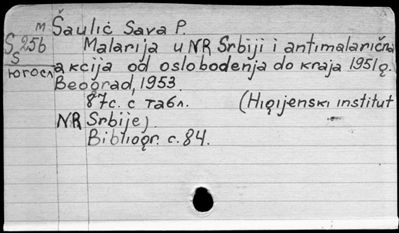 М Šaulić Sava P.
S 256 Malarija u NR Srbiji i antimalarična
S
югосл akcija od oslobođenja do kraja 1951 g.
Beograd, 1953.
87 с. с табл. (Higijenski institut
NR Srbije)
Bibliogr. c. 84.